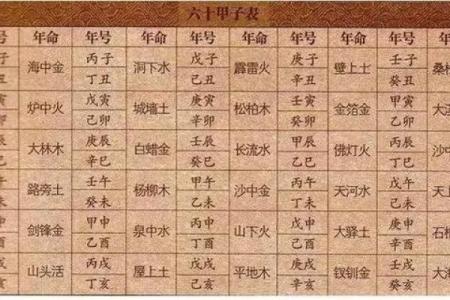 六十甲子表
号 年命 年号 年命 年号 年命 年号 年命 年号 年命
子 丙子 戊子 庚子 壬子
海中金 洞下水 霹雳火 壁上土 桑
丑 丁丑 己丑 辛丑 癸丑
寅 戊寅 庚寅 壬寅 甲寅
炉中火 城墙土 松柏木 金箔金 大
卯 己卯 辛卯 癸卯 乙卯
辰 庚辰 壬辰 甲辰 丙辰
大林木 白蜡金 长流水 佛灯火 沙中
巳 辛巳 癸巳 乙巳 丁巳
午 壬午 甲午 丙午 戊午
路旁土 杨柳木 沙中金 天河水 天上
未 癸未 乙未 丁未 己未
申 甲申 丙申 戊申 庚申
剑锋金 泉中水 山下火 大驿土 石
酉 乙酉 丁酉 己酉 辛酉
戌 丙戌 戊戌 庚戌 壬戌
山头活 屋上土 平地木 钗钏金 大
亥 丁亥 己亥 辛亥 癸亥